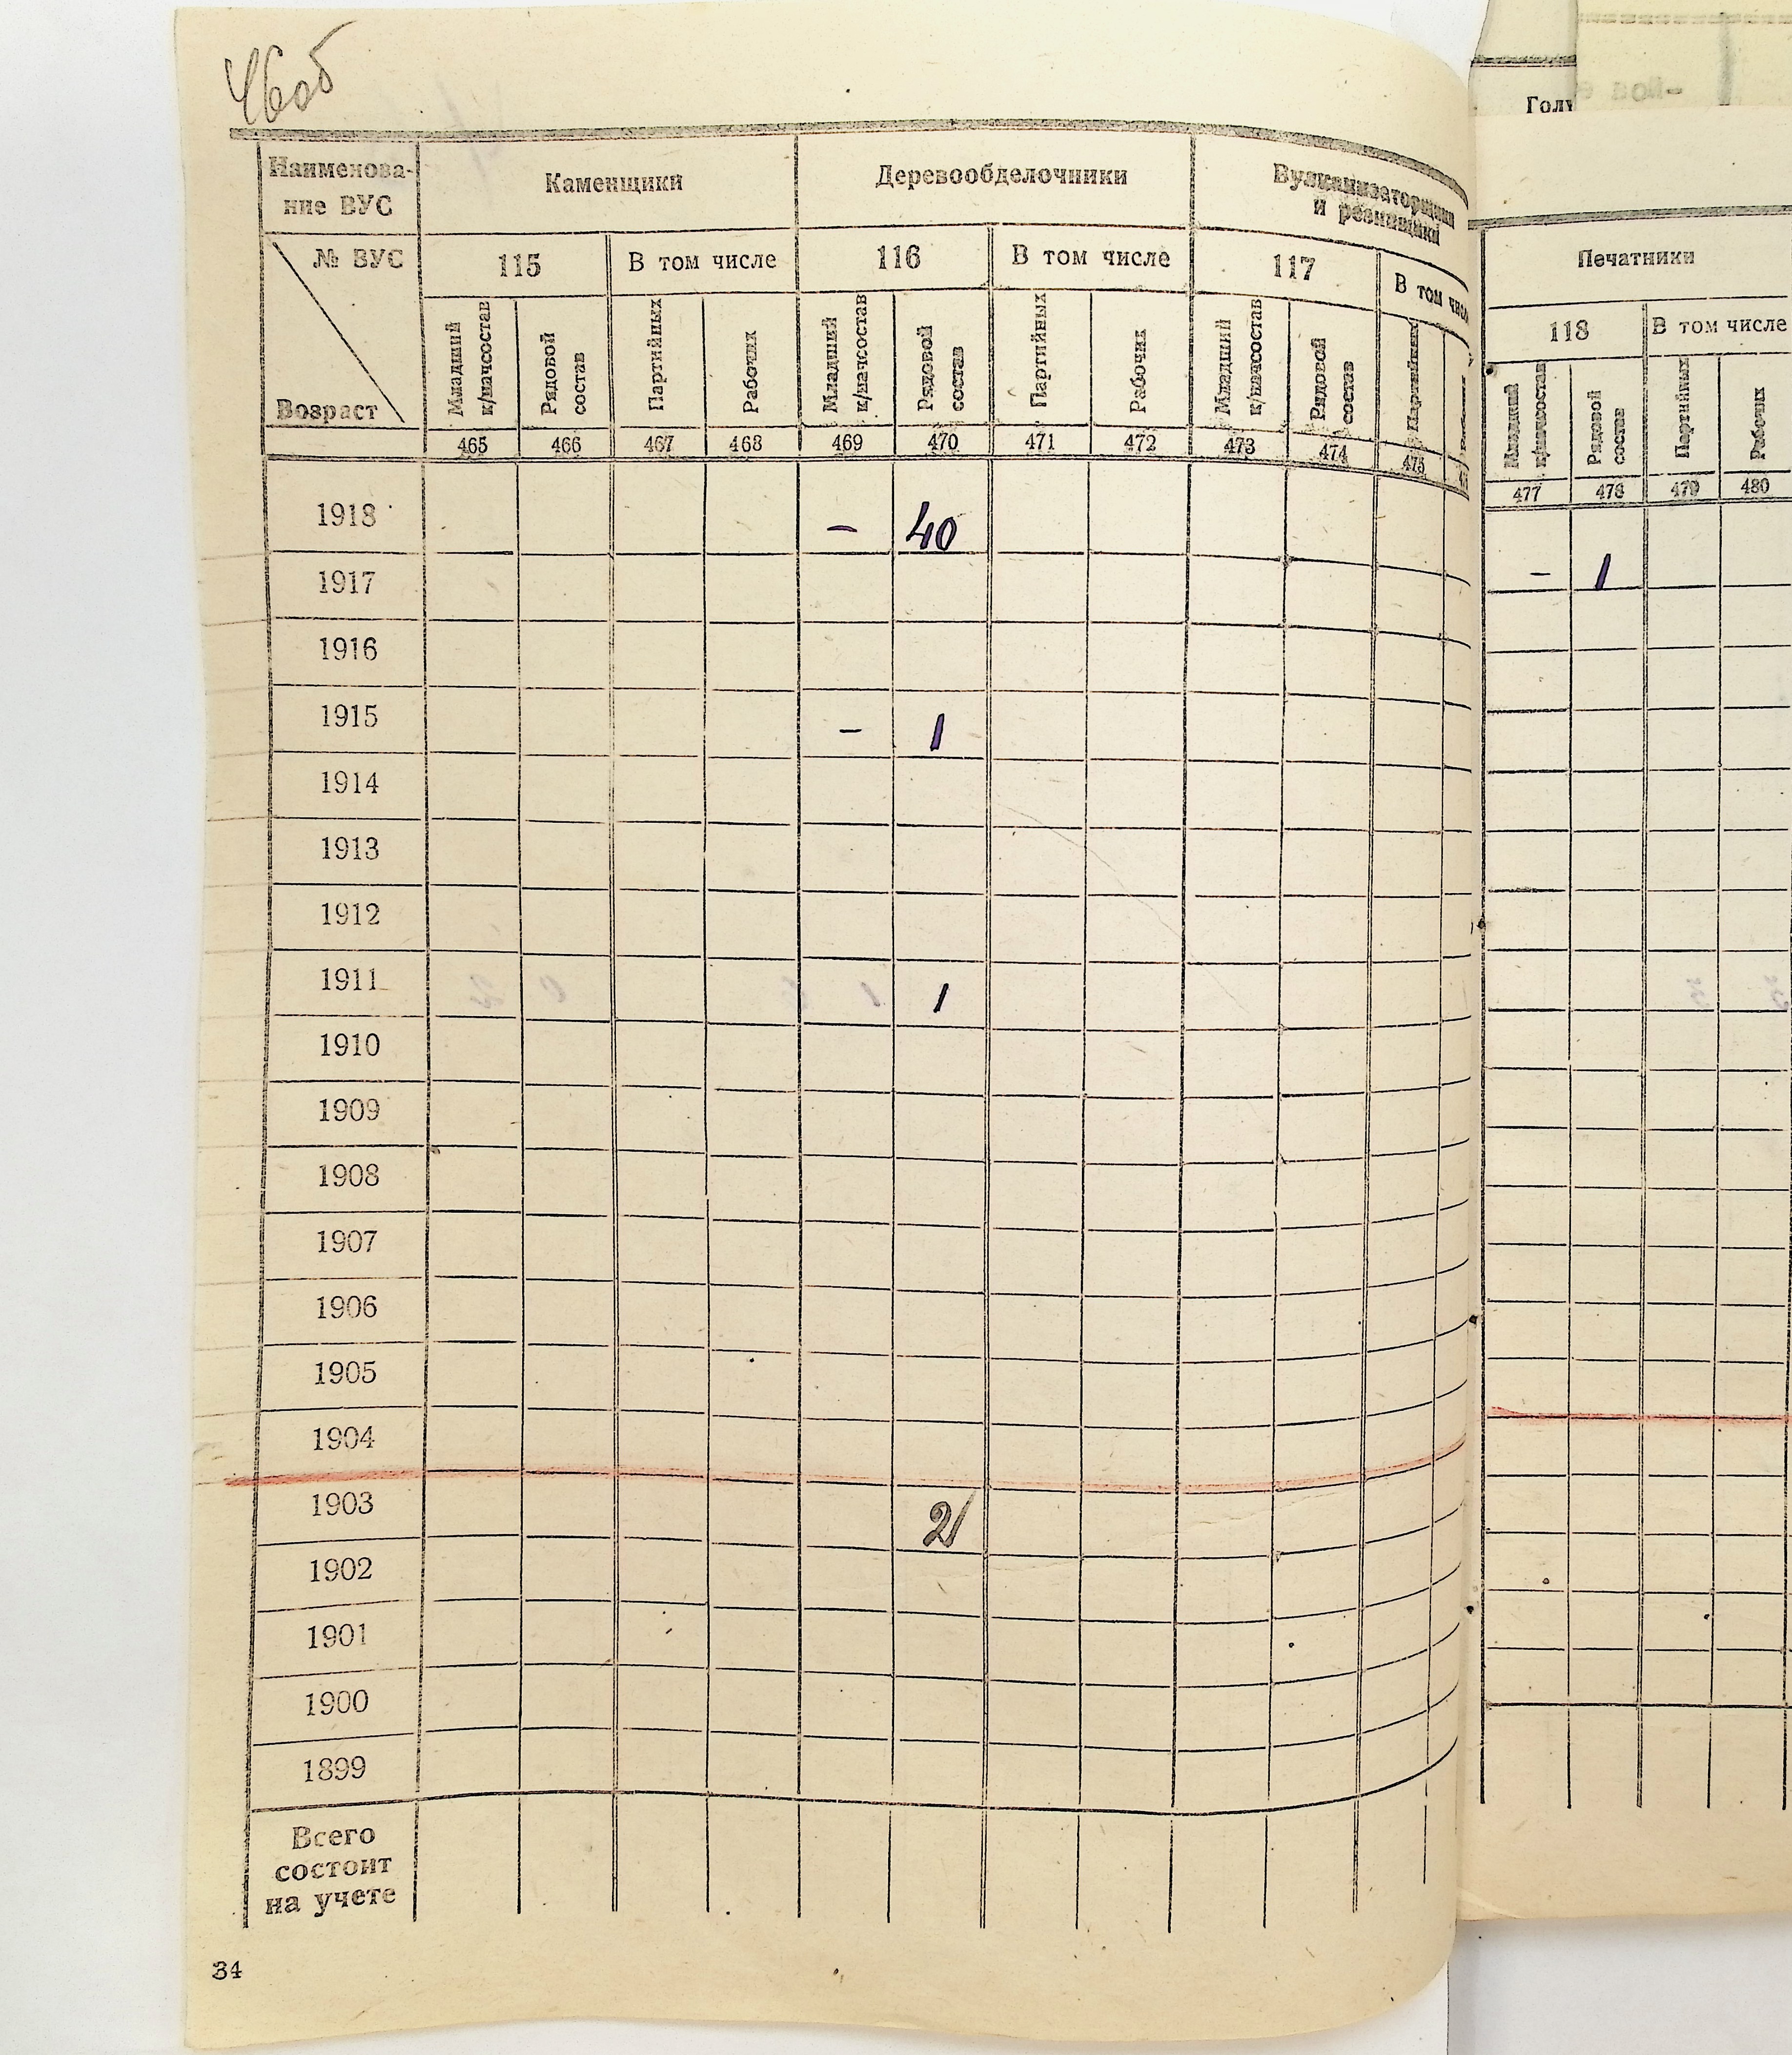 46об
Наименова-
ние ВУС
Каменщики
Деревообделочники
Вулканизаторщики
и резинщики
№ ВУС
Возраст
115
В том числе
116
В том числе
117
В том числ
Младший к/начсостав
Рядовой состав
Партийных
Рабочих
Младший к/начсостав
Рядовой состав
Партийных
Рабочих
Младший к/начсостав
Рядовой состав
Партийных
465 466 467 468 469 470 471 472 473 474 475
1918 – 40
1917
1916
1915 – 1
1914
1913
1912
1911 1
1910
1909
1908
1907
1906
1905
1904
1903 2
1902
1901
1900
1899
Всего
состоит
на учете
34
Печатники
118
В том числе
Младший к/начсостав
Рядовой состав
Партийных
Рабочих
477 478 479 480
– 1